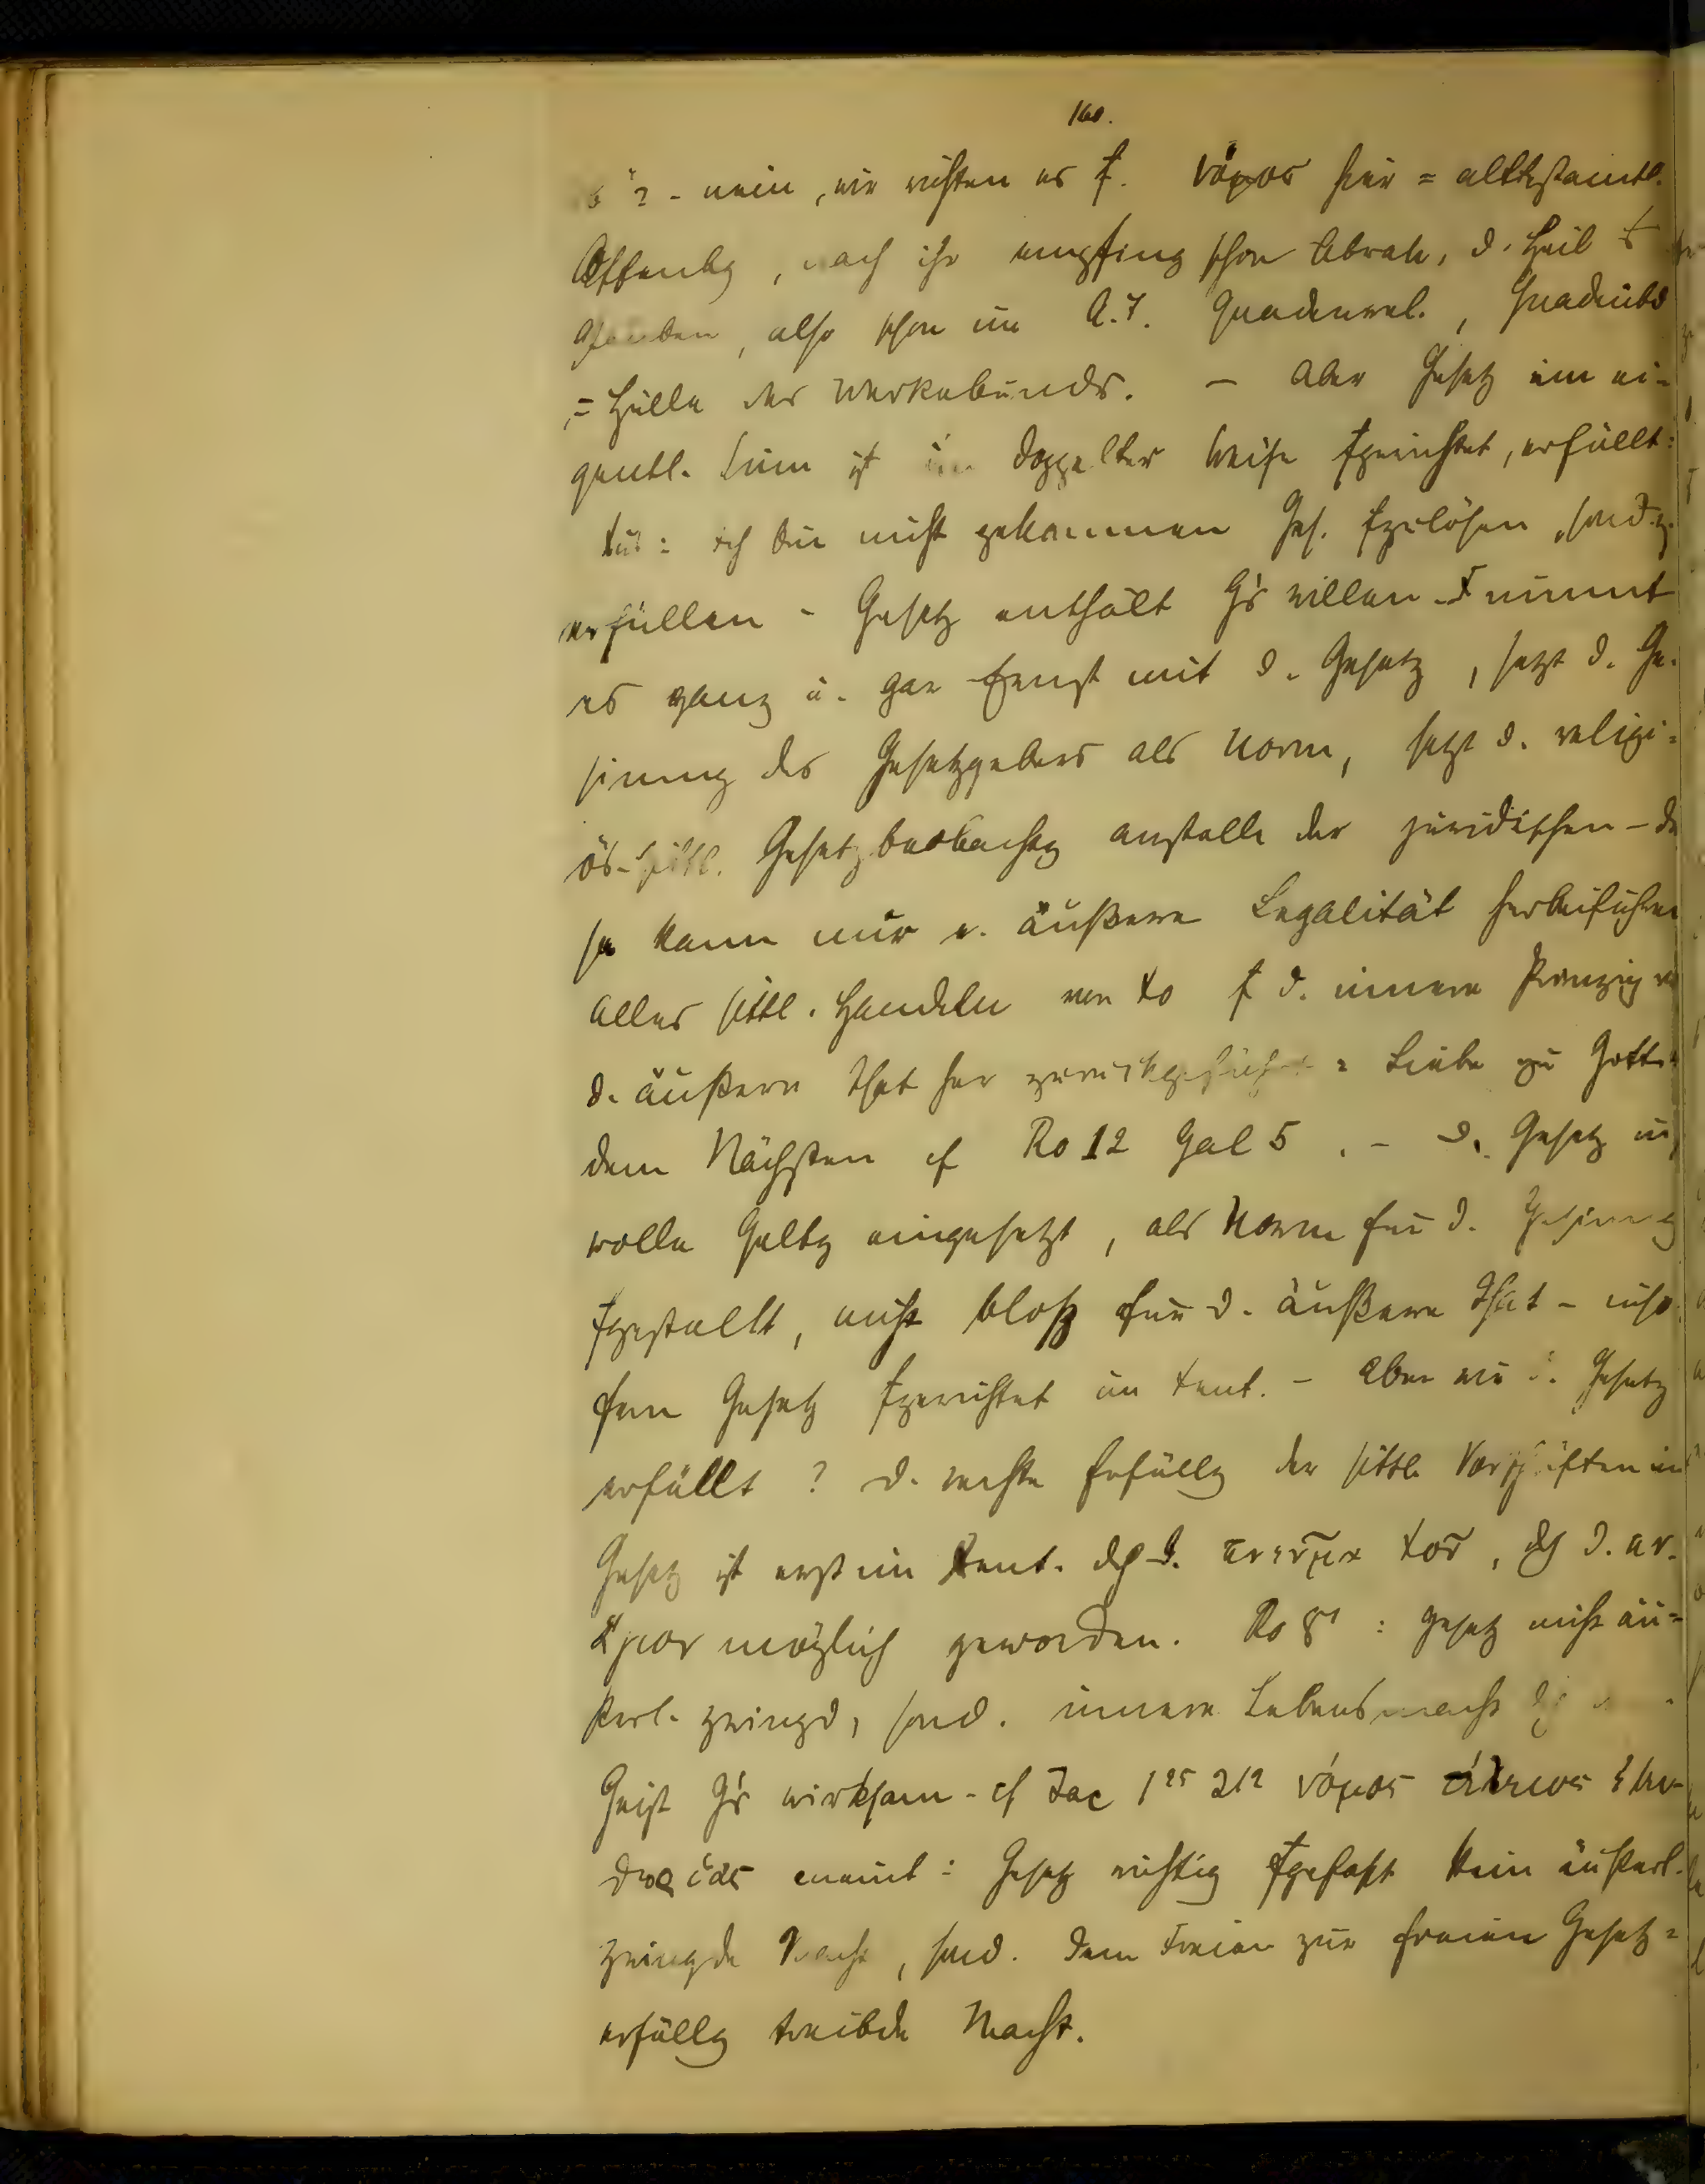 160.
? - nein, wir richten es f. νόμος hier = alttestamtl.
Offenbg, nach ihr empfing schon Abrah. d. Heil
Glauben, also schon im A.T. Gnadenrel., Gnadenbd
= Hülle des Werkebunds. - Aber Gesetz im ei-
gentl. Sinn ist in doppelter Weise fgerichtet, erfüllt:
: ich bin nicht gekommen Ges. fzulösen, sond. z.
erfüllen - Gesetz enthält G's willen - X nimmt
es ganz u. gar Ernst mit d. Gesetz, setzt d. Ge-
sinnung des Gesetzgebers als Norm, setzt d. religi-
ös-sittl. Gesetzbeobachtg anstelle der juridischen -
kann nur e. äußere Legalität herbeiführen
alles sittl. Handeln von Xo f d. innere Prinzip
d. äußern That her zurückgeführt = Liebe zu Gott
dem Nächsten cf Ro 12 Gal 5. - d. Gesetz in
volle Geltg eingesetzt, als Norm für d. Gesinng
fgestellt, nicht bloß für d. äußere That - inso-
fern Gesetz fgerichtet im Xent. - Aber wie d. Gesetz
erfüllt? d. rechte Erfüllg der sittl. Vorschriften im
Gesetz ist erst im Xent. dch d. πνεῦμα Χοῦ, dch d.
möglich geworden. Ro 8 : Gesetz nicht äu-
ßerl. zwingd, sond. innere Lebensmacht
Geist G's wirksam - cf Jac 1 25 2 12 νόμος τέλειος ἐλευ-
θερίας nennt: Gesetz richtig fgefaßt kein äußerl.
zwingde Macht, sond. dem Freien zur freien Gesetz-
erfüllg treibde Macht.